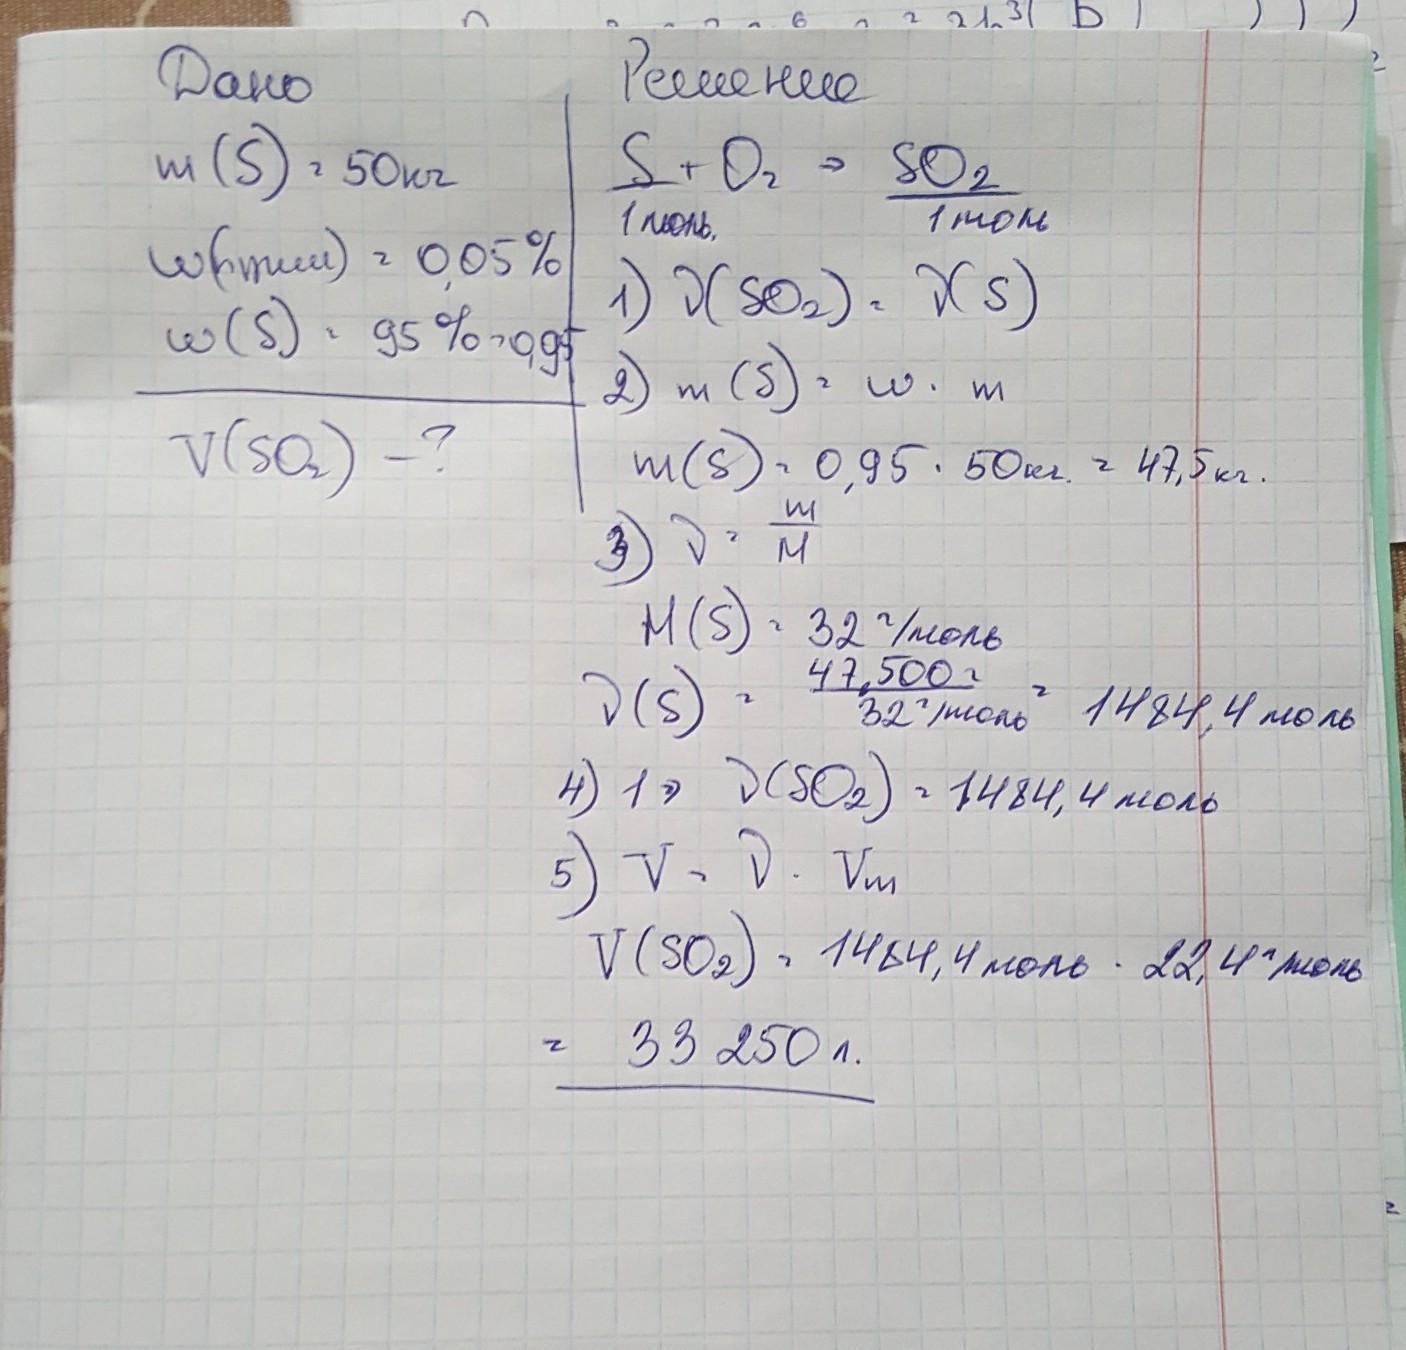 Дано
m(S) = 50кг
w(прим) = 0,05%
w(S) = 95% = 0,95
V(SO₂) – ?
Решение
S + O₂ → SO₂
1 моль. 1 моль
1) ν(SO₂) = ν(S)
2) m(S) = w · m
m(S) = 0,95 · 50кг. = 47,5кг.
3) ν = m/M
M(S) = 32 г/моль
ν(S) = 47.500г / 32 г/моль = 1484,4 моль
4) 1 → ν(SO₂) = 1484,4 моль
5) V = ν · Vm
V(SO₂) = 1484,4 моль · 22,4 л/моль
= 33 250 л.